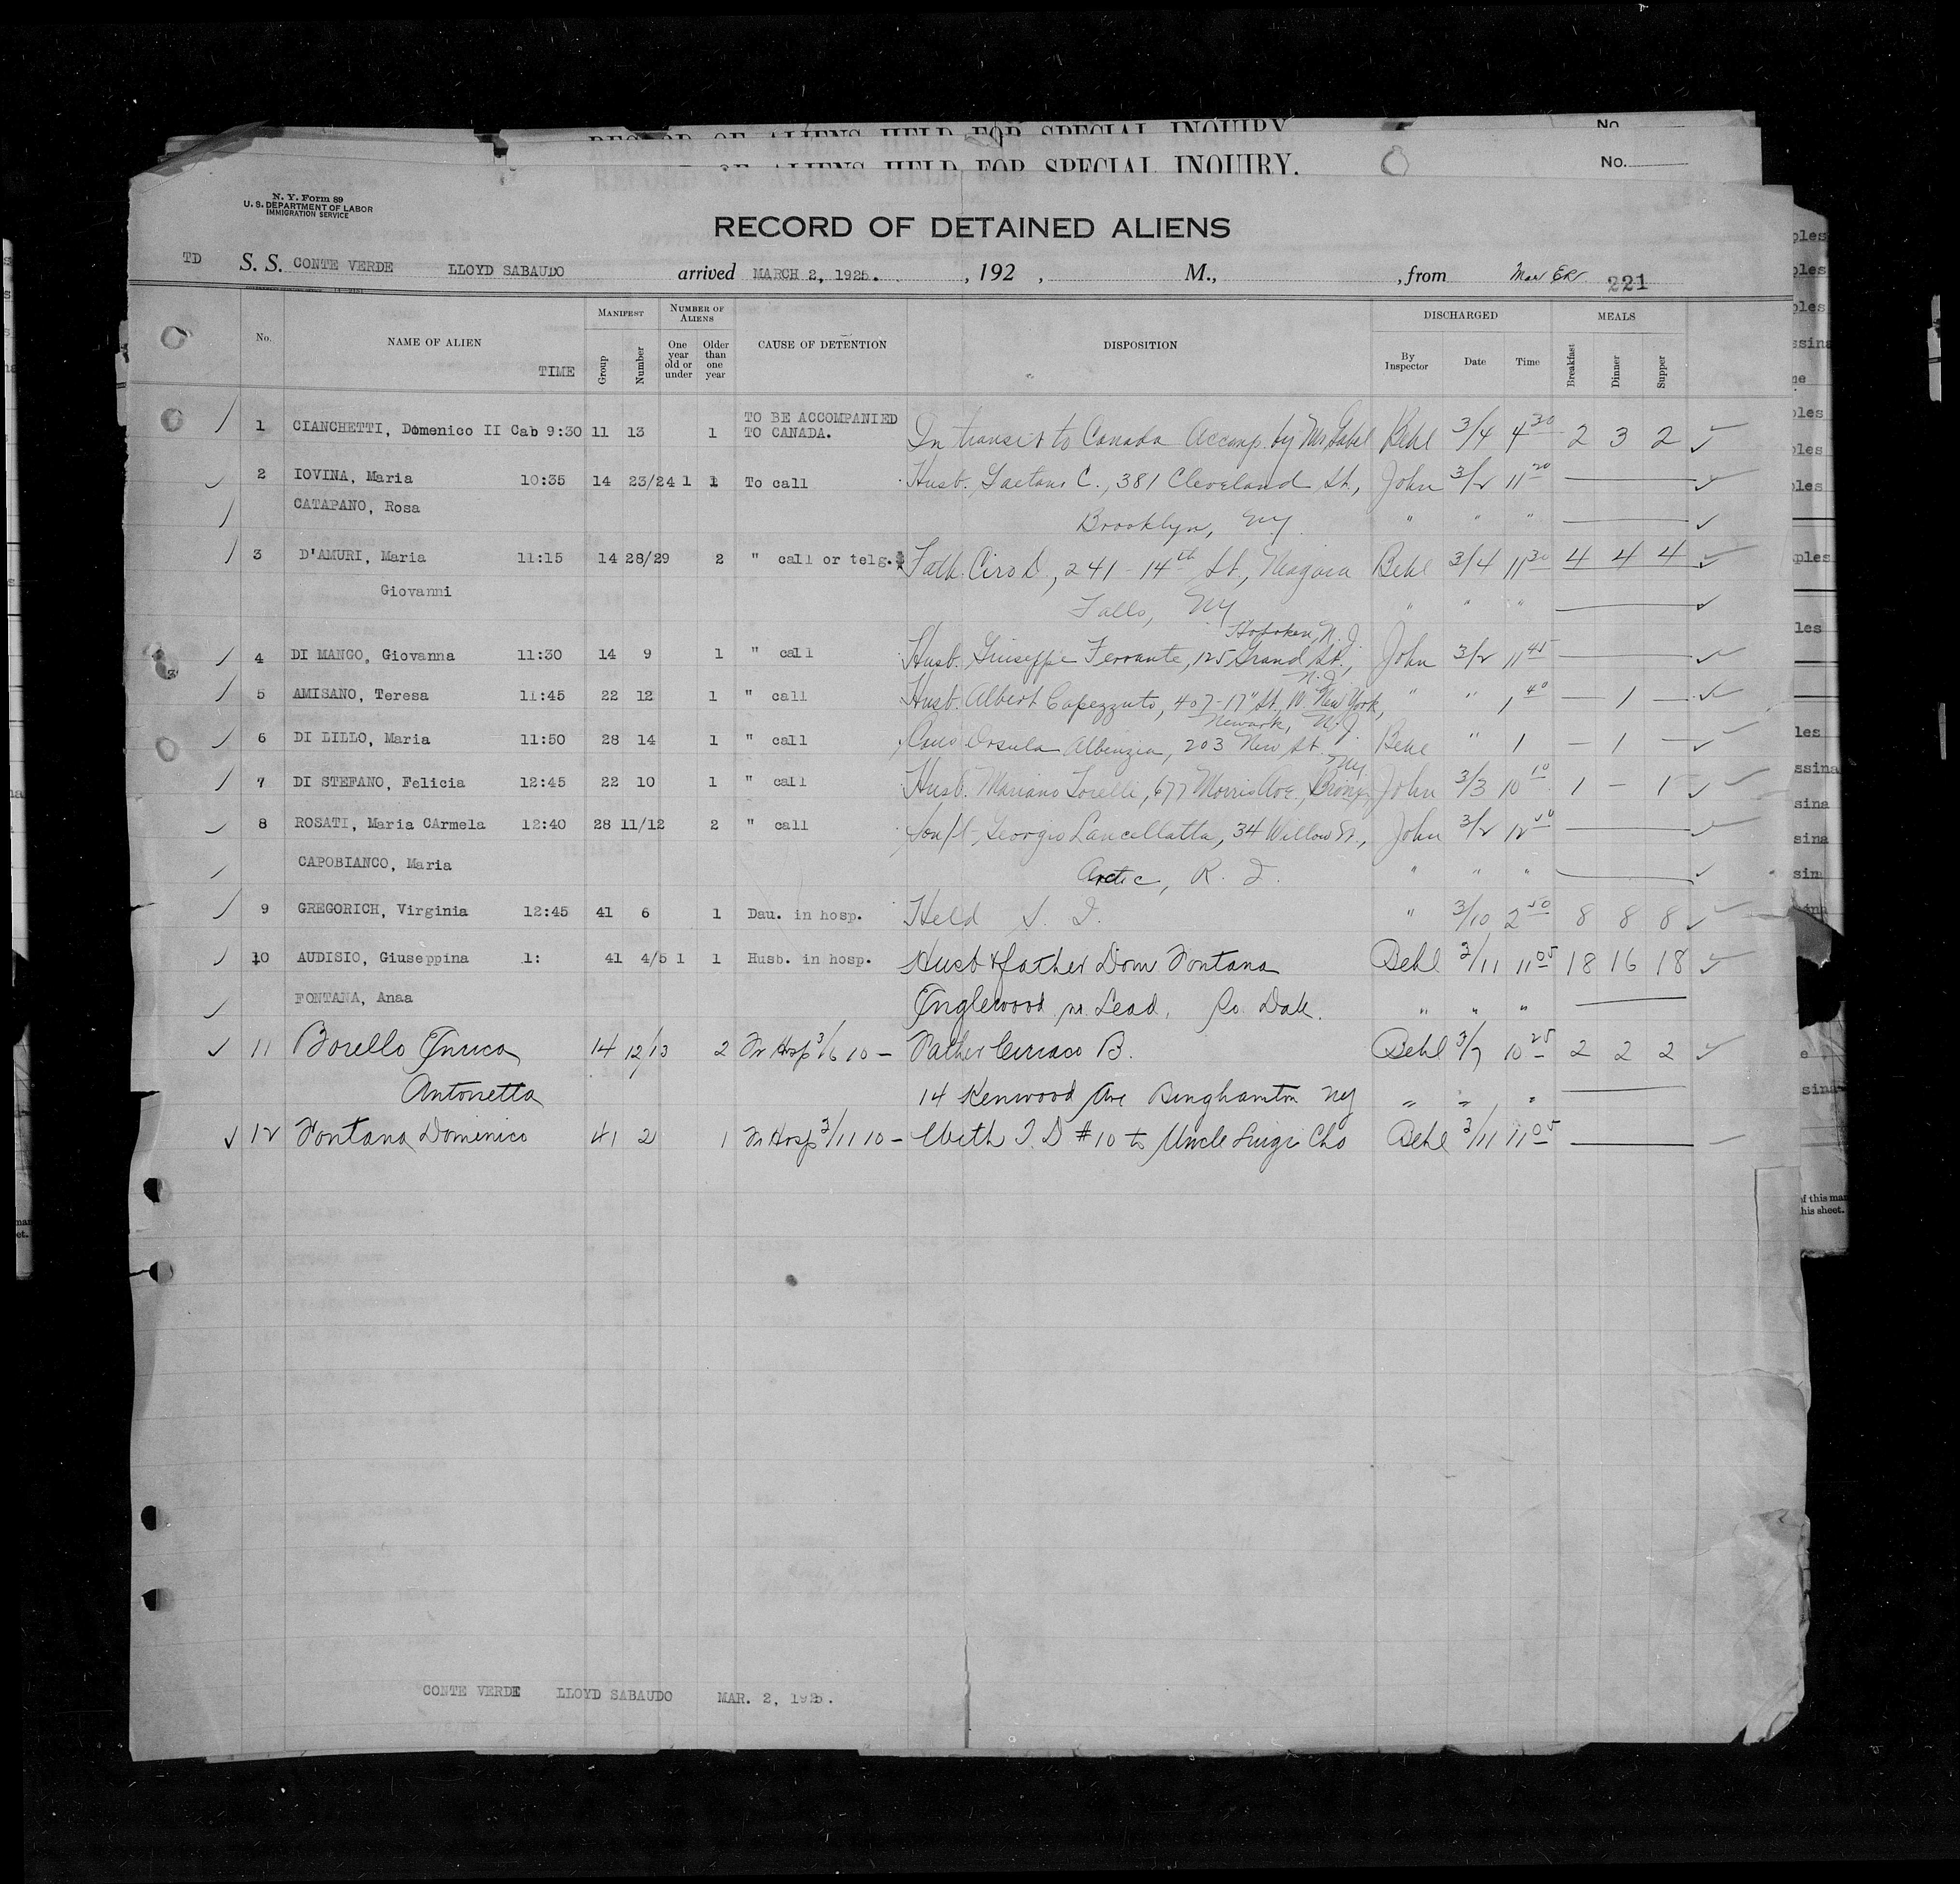 RECORD OF ALIENS HELD FOR SPECIAL INQUIRY. No.
ALIENS HELD FOR SPECIAL INQUIRY. No.
N. Y. Form 89
U. S. DEPARTMENT OF LABOR
IMMIGRATION SERVICE
RECORD OF DETAINED ALIENS
TD S. S. CONTE VERDE LLOYD SABAUDO arrived MARCH 2, 1925. , 192 , M., , from 221
No. NAME OF ALIEN TIME MANIFEST Group Number NUMBER OF ALIENS One year old or under Older than one year CAUSE OF DETENTION DISPOSITION DISCHARGED By Inspector Date Time MEALS Breakfast Dinner Supper
1 CIANCHETTI, Domenico II Cab 9:30 11 13 1 TO BE ACCOMPANIED TO CANADA. In transit to Canada Accomp. by Mr Gabel Behl 3/4 4 30 2 3 2
2 IOVINA, Maria 10:35 14 23/24 1 1 To call Husb. Gaetano C., 381 Cleveland St., John 3/2 11 20
CATAPANO, Rosa Brooklyn, NY " " "
3 D'AMURI, Maria 11:15 14 28/29 2 " call or telg. Fath. Ciro D, 241-14th St., Niagara Behl 3/4 11 30 4 4 4
Giovanni Falls, NY " " "
Hoboken, N.J.
4 DI MANGO, Giovanna 11:30 14 9 1 " call Husb. Giuseppe Ferrante, 125 Grand St., John 3/2 11 45
N.J.
5 AMISANO, Teresa 11:45 22 12 1 " call Husb. Albert Capezzuto, 407-17" St, W. New York, " " 1 40 1
Newark, N.J.
6 DI LILLO, Maria 11:50 28 14 1 " call Orsula Albenzia, 203 New St. Behl " 1 1
NY
7 DI STEFANO, Felicia 12:45 22 10 1 " call Husb. Mariano Torelle, 677 Morris Ave., Bronx, John 3/3 10 10 1 - 1
8 ROSATI, Maria CArmela 12:40 28 11/12 2 " call Georgio Lancellatta, 34 Willow St., John 3/2 12
CAPOBIANCO, Maria Arctic, R. I. " " "
9 GREGORICH, Virginia 12:45 41 6 1 Dau. in hosp. Held S. I. " 3/10 2 8 8 8
10 AUDISIO, Giuseppina 1: 41 4/5 1 1 Husb. in hosp. Husb & father Dom Fontana Behl 3/11 11 05 18 16 18
FONTANA, Anaa Inglewood nr. Lead, So. Dak. " " "
11 Borello Enrica 14 12/13 2 In Hosp 3/6 10 - Father Ciriaco B. Behl 3/7 10 25 2 2 2
Antonetta 14 Kenwood Ave Binghamton NY " " "
12 Fontana Domenico 41 2 1 In Hosp 3/11 10 - With T. D #10 to Uncle Luigi Behl 3/11 11 05
CONTE VERDE LLOYD SABAUDO MAR. 2, 1925.